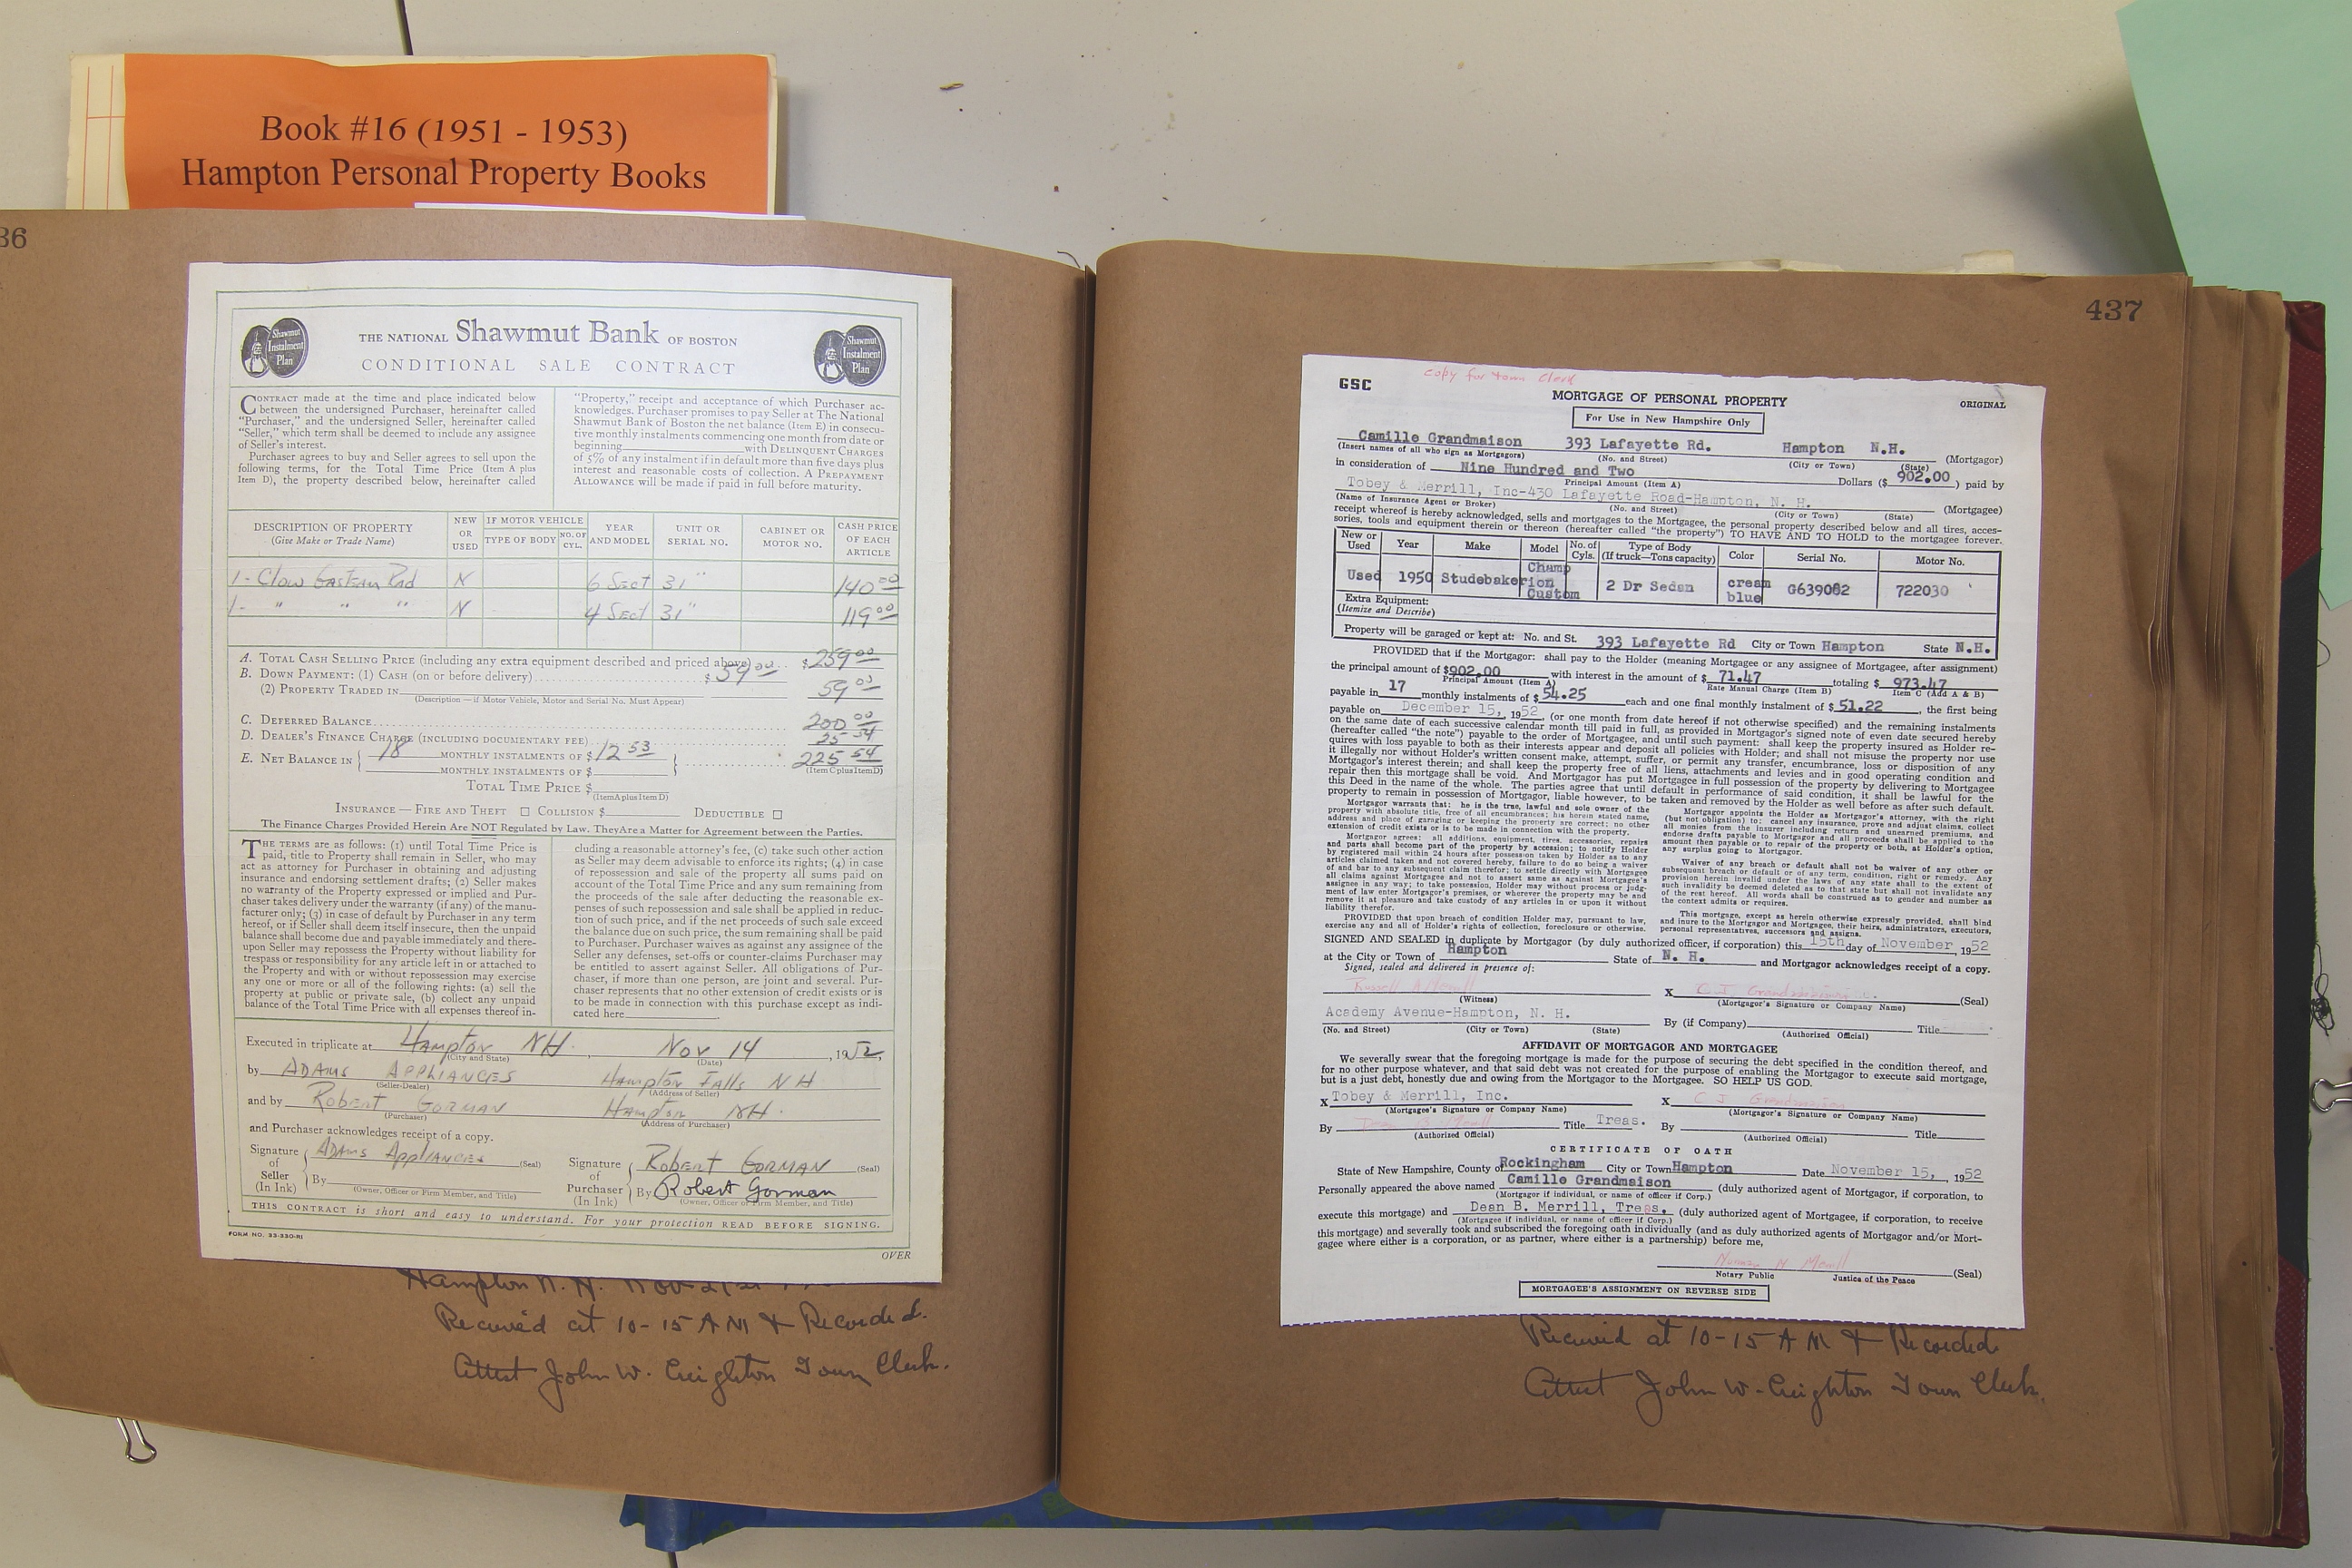 Book #16 (1951 - 1953)
Hampton Personal Property Books
36
Shawmut
Instalment
Plan
THE NATIONAL Shawmut Bank OF BOSTON
CONDITIONAL SALE CONTRACT
Shawmut
Instalment
Plan
CONTRACT made at the time and place indicated below
between the undersigned Purchaser, hereinafter called
"Purchaser," and the undersigned Seller, hereinafter called
"Seller," which term shall be deemed to include any assignee
of Seller's interest.
Purchaser agrees to buy and Seller agrees to sell upon the
following terms, for the Total Time Price (Item A plus
Item D), the property described below, hereinafter called
"Property," receipt and acceptance of which Purchaser ac-
knowledges. Purchaser promises to pay Seller at The National
Shawmut Bank of Boston the net balance (Item E) in consecu-
tive monthly instalments commencing one month from date or
beginning with DELINQUENT CHARGES
of 5% of any instalment if in default more than five days plus
interest and reasonable costs of collection. A PREPAYMENT
ALLOWANCE will be made if paid in full before maturity.
DESCRIPTION OF PROPERTY (Give Make or Trade Name) NEW OR USED IF MOTOR VEHICLE TYPE OF BODY NO. OF CYL. YEAR AND MODEL UNIT OR SERIAL NO. CABINET OR MOTOR NO. CASH PRICE OF EACH ARTICLE
1 - Clow Gasteam Rad N 6 Sect 31" 140 00
1 - " " " N 4 Sect 31" 119 00
A. TOTAL CASH SELLING PRICE (including any extra equipment described and priced above) $ 259 00
B. DOWN PAYMENT: (1) CASH (on or before delivery) $ 59 00
(2) PROPERTY TRADED IN 59 00
(Description — if Motor Vehicle, Motor and Serial No. Must Appear)
C. DEFERRED BALANCE 200 00
D. DEALER'S FINANCE CHARGE (INCLUDING DOCUMENTARY FEE) 25 54
E. NET BALANCE IN 18 MONTHLY INSTALMENTS OF $ 12 53 225 54
MONTHLY INSTALMENTS OF $ (Item C plus Item D)
TOTAL TIME PRICE $
(Item A plus Item D)
INSURANCE — FIRE AND THEFT ☐ COLLISION $ DEDUCTIBLE ☐
The Finance Charges Provided Herein Are NOT Regulated by Law. They Are a Matter for Agreement between the Parties.
THE TERMS are as follows: (1) until Total Time Price is
paid, title to Property shall remain in Seller, who may
act as attorney for Purchaser in obtaining and adjusting
insurance and endorsing settlement drafts; (2) Seller makes
no warranty of the Property expressed or implied and Pur-
chaser takes delivery under the warranty (if any) of the manu-
facturer only; (3) in case of default by Purchaser in any term
hereof, or if Seller shall deem itself insecure, then the unpaid
balance shall become due and payable immediately and there-
upon Seller may repossess the Property without liability for
trespass or responsibility for any article left in or attached to
the Property and with or without repossession may exercise
any one or more or all of the following rights: (a) sell the
property at public or private sale, (b) collect any unpaid
balance of the Total Time Price with all expenses thereof in-
cluding a reasonable attorney's fee, (c) take such other action
as Seller may deem advisable to enforce its rights; (4) in case
of repossession and sale of the property all sums paid on
account of the Total Time Price and any sum remaining from
the proceeds of the sale after deducting the reasonable ex-
penses of such repossession and sale shall be applied in reduc-
tion of such price, and if the net proceeds of such sale exceed
the balance due on such price, the sum remaining shall be paid
to Purchaser. Purchaser waives as against any assignee of the
Seller any defenses, set-offs or counter-claims Purchaser may
be entitled to assert against Seller. All obligations of Pur-
chaser, if more than one person, are joint and several. Pur-
chaser represents that no other extension of credit exists or is
to be made in connection with this purchase except as indi-
cated here
Executed in triplicate at Hampton NH. , Nov 14 , 1952,
(City and State) (Date)
by ADAMS APPLIANCES Hampton Falls NH
(Seller-Dealer) (Address of Seller)
and by Robert GORMAN Hampton NH.
(Purchaser) (Address of Purchaser)
and Purchaser acknowledges receipt of a copy.
Signature of Seller (In Ink) ADAMS APPLIANCES (Seal)
By (Owner, Officer or Firm Member, and Title)
Signature of Purchaser (In Ink) Robert GORMAN (Seal)
By Robert Gorman
(Owner, Officer or Firm Member, and Title)
THIS CONTRACT is short and easy to understand. For your protection READ BEFORE SIGNING.
FORM NO. 33-330-RI
OVER
Hampton N. H. Nov 21st
Received at 10-15 AM & Recorded.
Attest John W. Creighton Town Clerk.
437
GSC
Copy for town Clerk
MORTGAGE OF PERSONAL PROPERTY
ORIGINAL
For Use in New Hampshire Only
Camille Grandmaison 393 Lafayette Rd. Hampton N.H. (Mortgagor)
(Insert names of all who sign as Mortgagors) (No. and Street) (City or Town) (State)
in consideration of Nine Hundred and Two Dollars ($ 902.00 ) paid by
Principal Amount (Item A)
Tobey & Merrill, Inc-430 Lafayette Road-Hampton, N. H. (Mortgagee)
(Name of Insurance Agent or Broker) (No. and Street) (City or Town) (State)
receipt whereof is hereby acknowledged, sells and mortgages to the Mortgagee, the personal property described below and all tires, acces-
sories, tools and equipment therein or thereon (hereafter called "the property") TO HAVE AND TO HOLD to the mortgagee forever.
New or Used Year Make Model No. of Cyls. Type of Body (If truck—Tons capacity) Color Serial No. Motor No.
Used 1950 Studebaker Champion Custom 2 Dr Sedan cream blue G639082 722030
Extra Equipment:
(Itemize and Describe)
Property will be garaged or kept at: No. and St. 393 Lafayette Rd City or Town Hampton State N.H.
PROVIDED that if the Mortgagor: shall pay to the Holder (meaning Mortgagee or any assignee of Mortgagee, after assignment)
the principal amount of $902.00 with interest in the amount of $ 71.47 totaling $ 973.47
Principal Amount (Item A) Rate Manual Charge (Item B) Item C (Add A & B)
payable in 17 monthly instalments of $ 54.25 each and one final monthly instalment of $ 51.22 , the first being
payable on December 15, , 1952, (or one month from date hereof if not otherwise specified) and the remaining instalments
on the same date of each successive calendar month till paid in full, as provided in Mortgagor's signed note of even date secured hereby
(hereafter called "the note") payable to the order of Mortgagee, and until such payment: shall keep the property insured as Holder re-
quires with loss payable to both as their interests appear and deposit all policies with Holder; and shall not misuse the property nor use
it illegally nor without Holder's written consent make, attempt, suffer, or permit any transfer, encumbrance, loss or disposition of any
Mortgagor's interest therein; and shall keep the property free of all liens, attachments and levies and in good operating condition and
repair then this mortgage shall be void. And Mortgagor has put Mortgagee in full possession of the property by delivering to Mortgagee
this Deed in the name of the whole. The parties agree that until default in performance of said condition, it shall be lawful for the
property to remain in possession of Mortgagor, liable however, to be taken and removed by the Holder as well before as after such default.
Mortgagor warrants that: he is the true, lawful and sole owner of the
property with absolute title, free of all encumbrances; his herein stated name,
address and place of garaging or keeping the property are correct; no other
extension of credit exists or is to be made in connection with the property.
Mortgagor agrees: all additions, equipment, tires, accessories, repairs
and parts shall become part of the property by accession; to notify Holder
by registered mail within 24 hours after possession taken by Holder as to any
articles claimed taken and not covered hereby, failure to do so being a waiver
of and bar to any subsequent claim therefor; to settle directly with Mortgagee
all claims against Mortgagee and not to assert same as against Mortgagee's
assignee in any way; to take possession, Holder may without process or judg-
ment of law enter Mortgagor's premises, or wherever the property may be and
remove it at pleasure and take custody of any articles in or upon it without
liability therefor.
PROVIDED that upon breach of condition Holder may, pursuant to law,
exercise any and all of Holder's rights of collection, foreclosure or otherwise.
Mortgagor appoints the Holder as Mortgagor's attorney, with the right
(but not obligation) to: cancel any insurance, prove and adjust claims, collect
all monies from the insurer including return and unearned premiums, and
endorse drafts payable to Mortgagor and all proceeds shall be applied to the
amount then payable or to repair of the property or both, at Holder's option,
any surplus going to Mortgagor.
Waiver of any breach or default shall not be waiver of any other or
subsequent breach or default or of any term, condition, right or remedy. Any
provision herein invalid under the laws of any state shall to the extent of
such invalidity be deemed deleted as to that state but shall not invalidate any
of the rest hereof. All words shall be construed as to gender and number as
the context admits or requires.
This mortgage, except as herein otherwise expressly provided, shall bind
and inure to the Mortgagor and Mortgagee, their heirs, administrators, executors,
personal representatives, successors and assigns.
SIGNED AND SEALED in duplicate by Mortgagor (by duly authorized officer, if corporation) this 15th day of November , 1952
at the City or Town of Hampton State of N. H. and Mortgagor acknowledges receipt of a copy.
Signed, sealed and delivered in presence of:
Russell A Merrill X C. J. Grandmaison (Seal)
(Witness) (Mortgagor's Signature or Company Name)
Academy Avenue-Hampton, N. H. By (if Company) Title
(No. and Street) (City or Town) (State) (Authorized Official)
AFFIDAVIT OF MORTGAGOR AND MORTGAGEE
We severally swear that the foregoing mortgage is made for the purpose of securing the debt specified in the condition thereof, and
for no other purpose whatever, and that said debt was not created for the purpose of enabling the Mortgagor to execute said mortgage,
but is a just debt, honestly due and owing from the Mortgagor to the Mortgagee. SO HELP US GOD.
X Tobey & Merrill, Inc. X C J Grandmaison
(Mortgagee's Signature or Company Name) (Mortgagor's Signature or Company Name)
By Dean B. Merrill Title Treas. By Title
(Authorized Official) (Authorized Official)
CERTIFICATE OF OATH
State of New Hampshire, County of Rockingham City or Town Hampton Date November 15, , 1952
Personally appeared the above named Camille Grandmaison (duly authorized agent of Mortgagor, if corporation, to
(Mortgagor if individual, or name of officer if Corp.)
execute this mortgage) and Dean B. Merrill, Treas. (duly authorized agent of Mortgagee, if corporation, to receive
(Mortgagee if individual, or name of officer if Corp.)
this mortgage) and severally took and subscribed the foregoing oath individually (and as duly authorized agents of Mortgagor and/or Mort-
gagee where either is a corporation, or as partner, where either is a partnership) before me,
Norman M Merrill (Seal)
Notary Public Justice of the Peace
MORTGAGEE'S ASSIGNMENT ON REVERSE SIDE
Received at 10-15 AM & Recorded
Attest John W. Creighton Town Clerk.